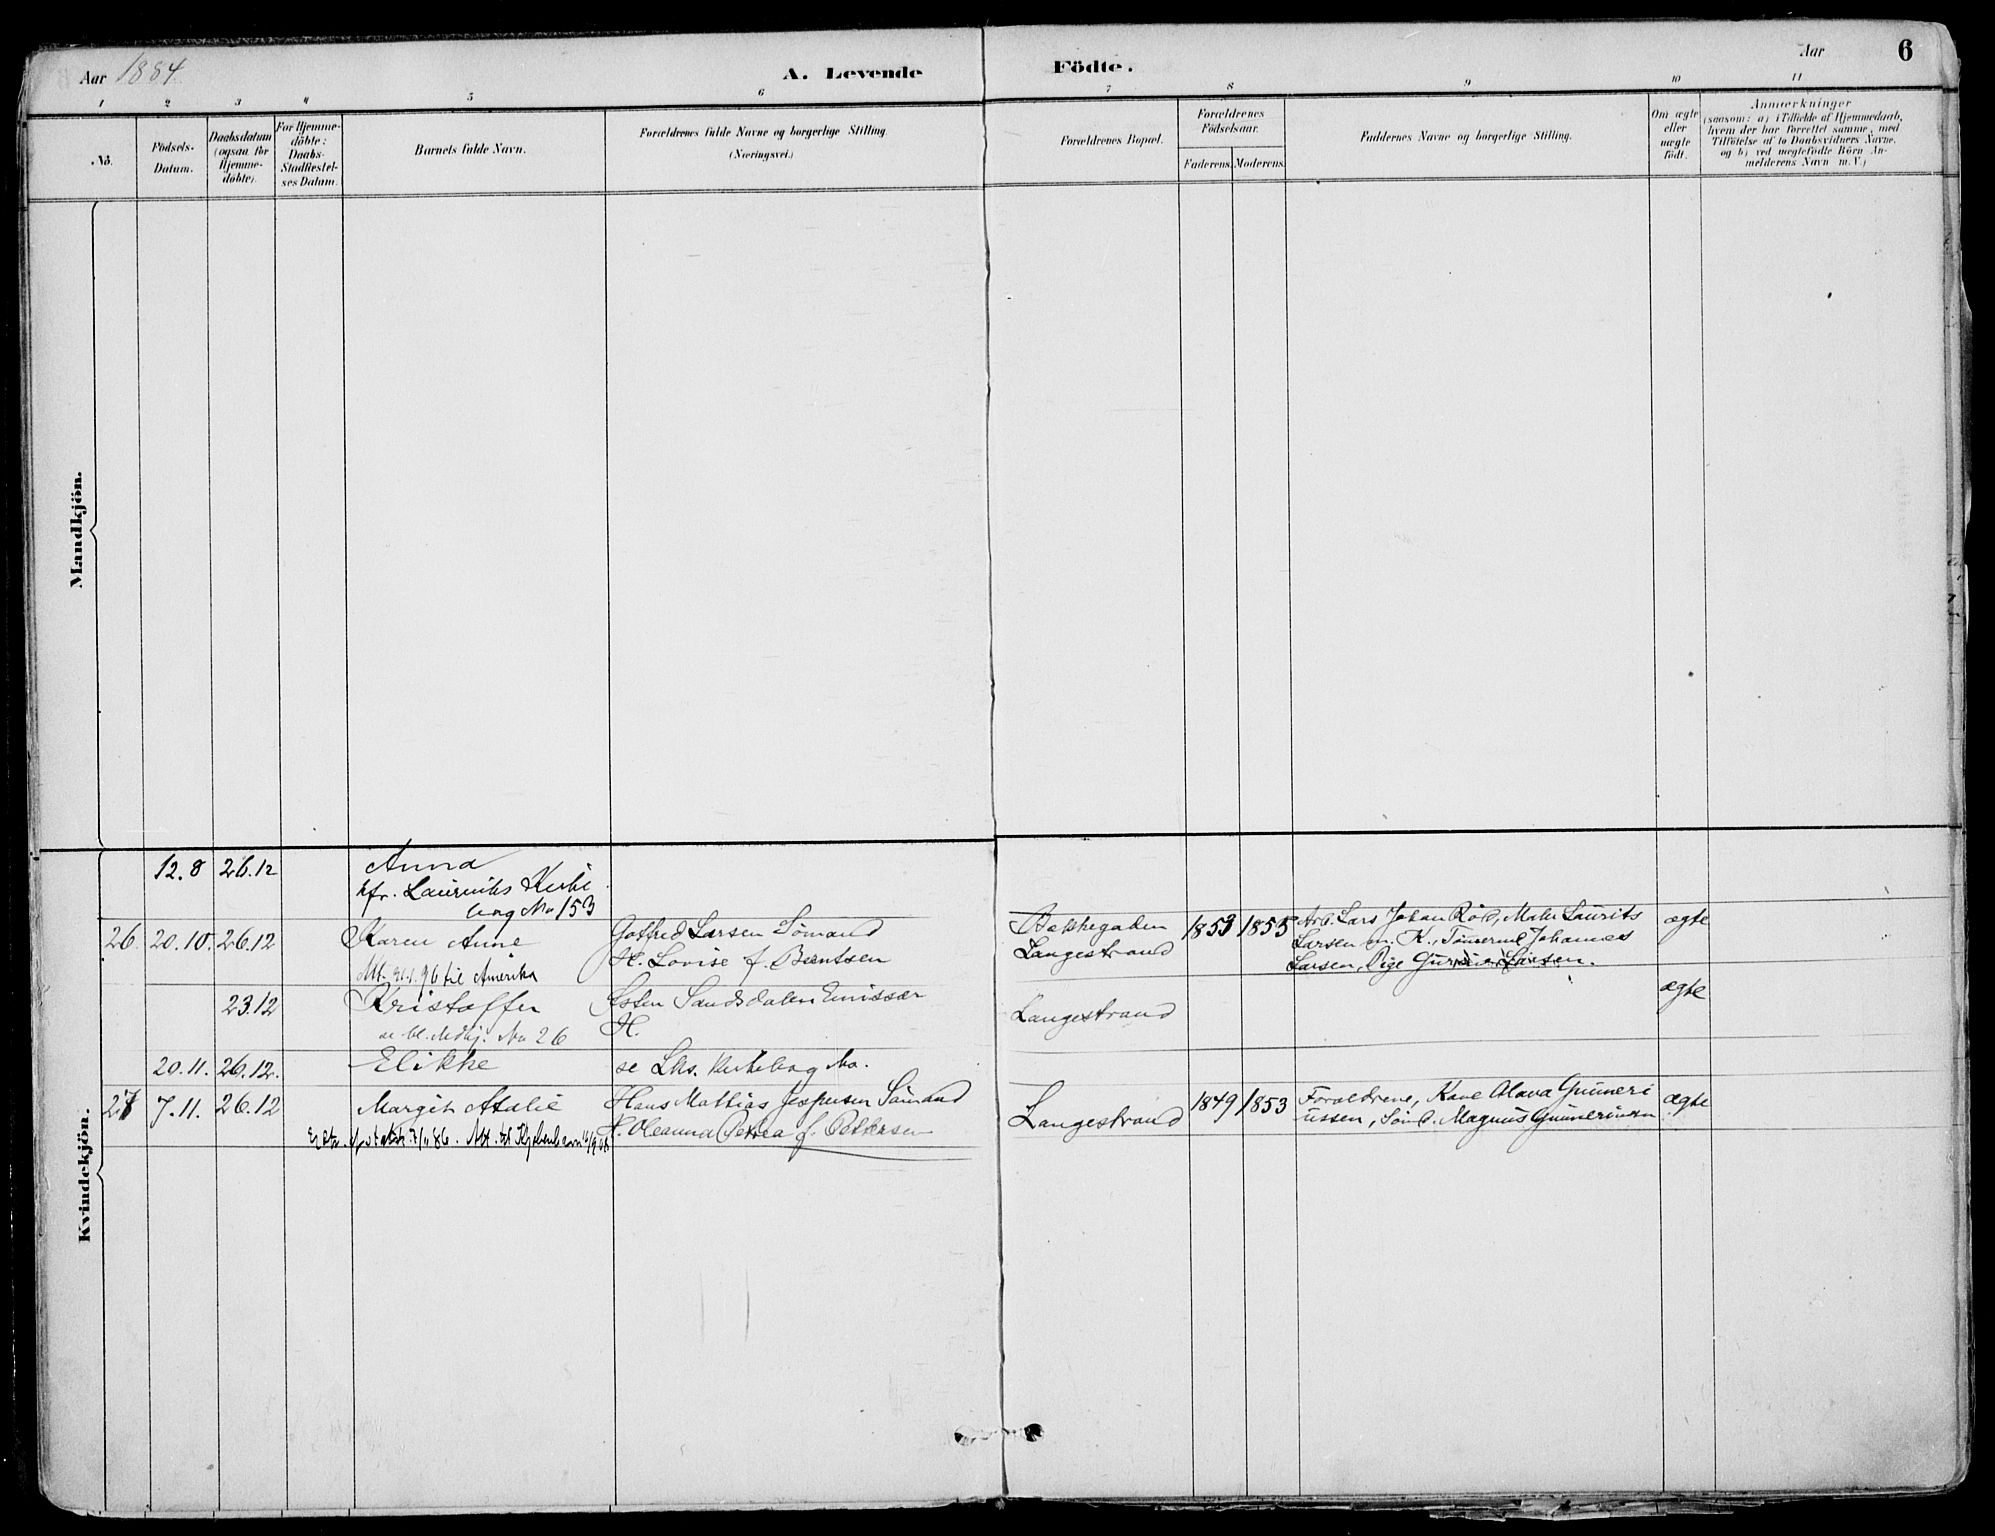 Aar 1884
A. Levende
Födte.
Aar
6
1 2 3 4 5 6 7 8 9 10 11
No.
Födsels-
Datum.
Daabsdatum
(ogsaa for
Hjemme-
döbte).
For Hjemme-
döbte:
Daabs-
Stadfæstel-
ses Datum.
Barnets fulde Navn.
Forældrenes fulde Navne og borgerlige Stilling.
(Næringsvei.)
Forældrenes Bopæl.
Forældrenes
Födselsaar.
Faderens. Moderens.
Faddernes Navne og borgerlige Stilling.
Om ægte
eller
uægte
födt.
Anmærkninger
(saasom: a) i Tilfælde af Hjemmedaab,
hvem der har forrettet samme, med
Tilföielse af to Daabsvidners Navne,
og b) ved uægtefødte Börn An-
melderens Navn m. V.)
Mandkjön.
Kvindekjön.
12.8 26.12 Anna
kfr. Laurviks Kirke
bog No 153
26 20.10 26.12 Karen Anne
Mt. 96 til Amerika
Gotfred Larsen Sømand
H. Lovise f. Berntsen
Bakkegaden
Langestrand
1853 1855
Arb. Lars Johan Röd, Maler Laurits
Larsen m. K., Tømmerm Johannes
Larsen, Pige Larsen.
ægte
23.12 Kristoffer
se bl. Mdkj. No 26
Sandsdalen Emissær
H.
Langestrand
ægte
20.11. 26.12. Elikke
se Lks. Kirkebog No.
27 7.11. 26.12 Margit Atalie
Hans Mattias Jespersen Sømand
H. Oleanna Petrea f. Pettersen
Langestrand
1849 1853
Forældrene, Kone Mava Gunneri
ussen, Sömd. Magnus Gunneriussen
ægte